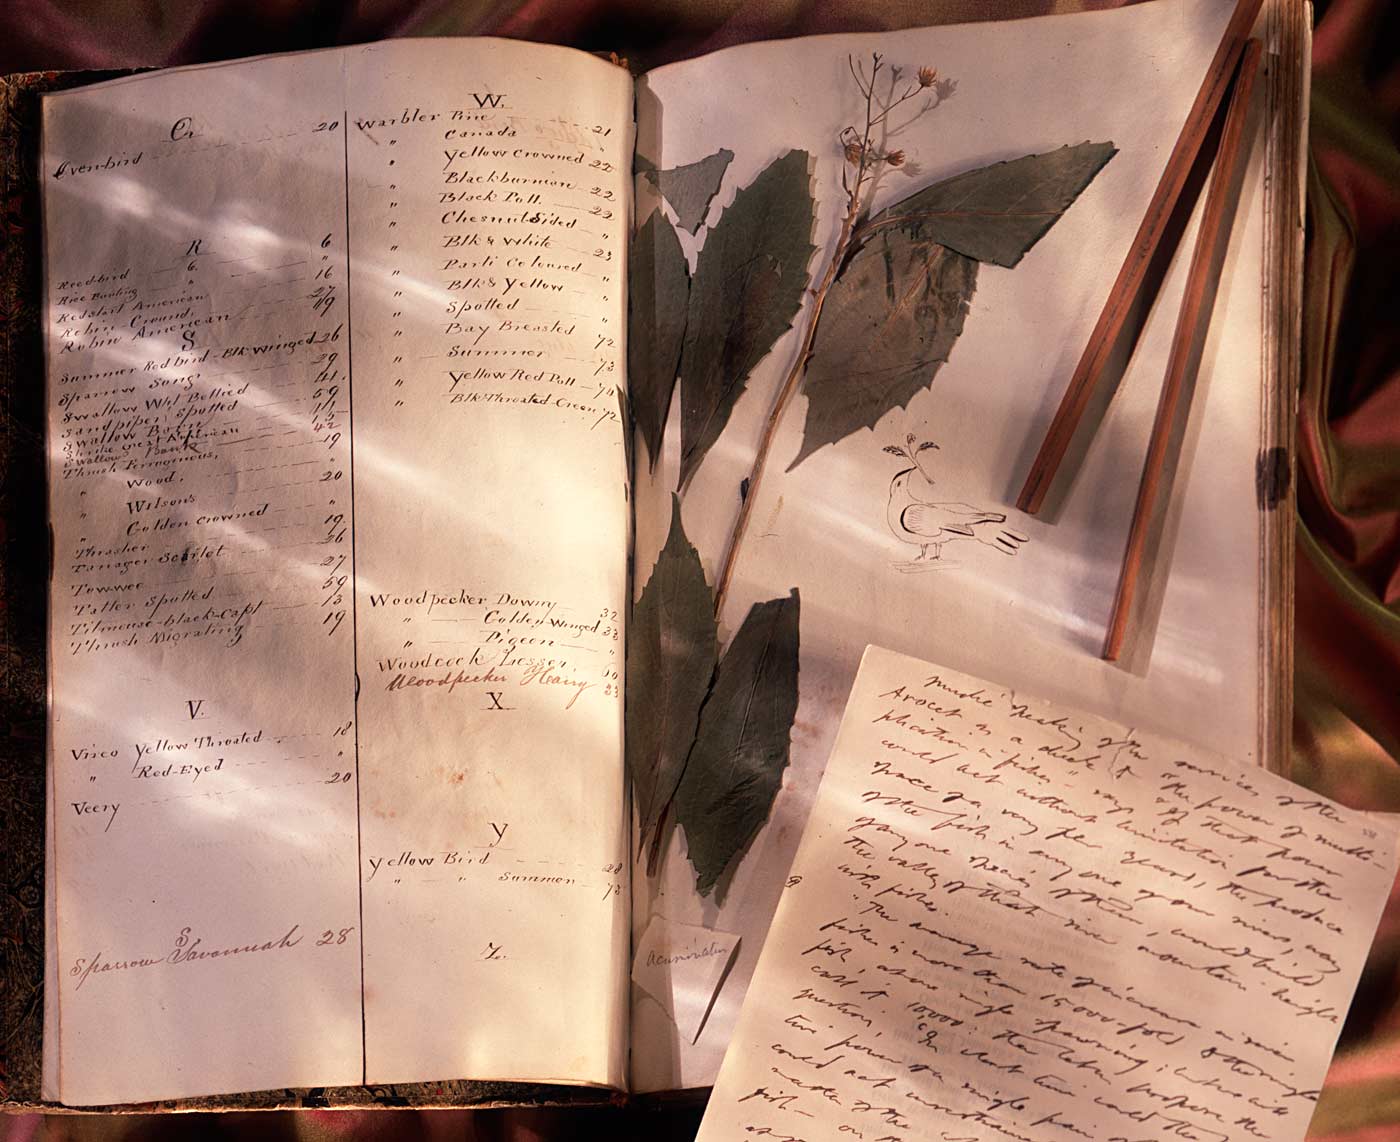 O
20
Oven-bird
R
6
Reed-bird 6
Rice Bunting "
Redstart American 16
Robin Ground 27
Robin American 19
S
Summer Red bird - Blk Winged 26
Sparrow Song 29
Swallow Wht Bellied 41
Sandpiper Spotted 59
Swallow Barn
Shrike Great American
Swallow Bank 42
Thrush Ferrugineous, 19
" Wood, "
" Wilson's 20
" Golden Crowned "
Thrasher 19
Tanager Scarlet 26
Tow-wee 27
Tatler Spotted 59
Titmouse-black-Capt 13
Thrush Migrating 19
V.
Vireo Yellow Throated 18
" Red-Eyed "
Veery 20
S
Sparrow Savannah 28
W.
Warbler Pine 21
" Canada "
" Yellow Crowned 22
" Blackburnian 22
" Black Poll 22
" Chesnut Sided "
" Blk & White 23
" Parti Coloured "
" Blk & Yellow "
" Spotted "
" Bay Breasted 72
" Summer 73
" Yellow Red Poll 74
" Blk Throated-Green 72
Woodpecker Downy 32
" Golden Winged 33
" Pigeon "
Woodcock Lesser 60
Woodpecker Hairy 33
X
Y
Yellow Bird 28
" " Summer 73
Z.
Acuminata
speaking of the services of the
Avocet as a check to "the power of multi-
plication in fishes" says "If that power
could act without limitation for the
space of a very few years, the produce
of the fish in any one of our rivers, nay
of any one species of them, would build
the valley of that river mountain height
with fishes.
"The average rate of increase in river
fishes is more than 15,000 fold of the single
fish, at one single spawning; but we will
call it 10000. Then let us propose the
question, "In what time could the
power of a single pair of
could act
matter of the
fish— on the